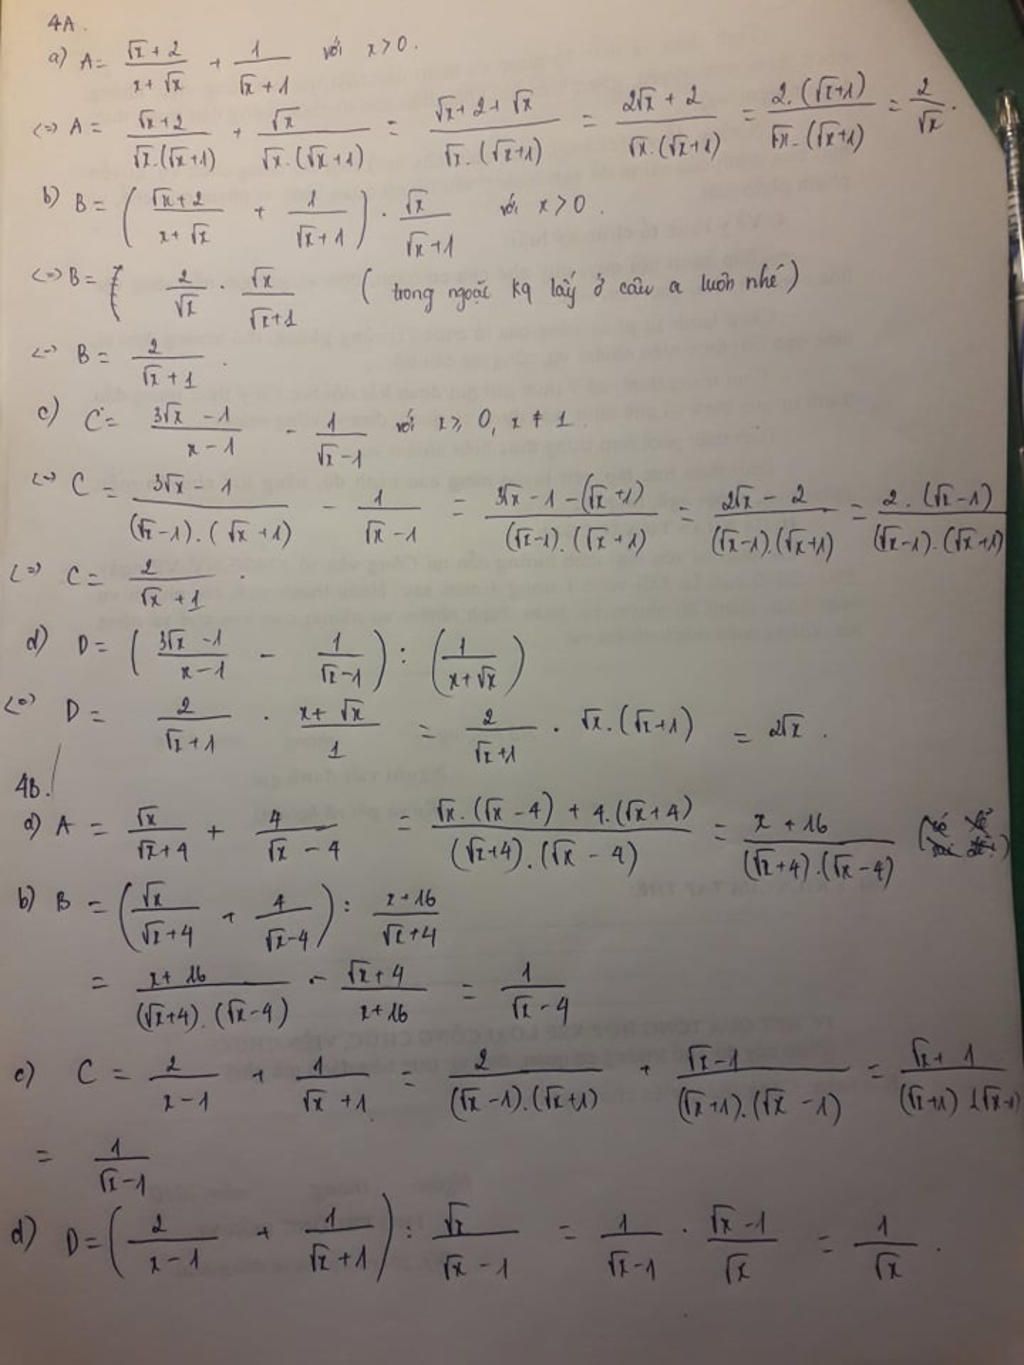 4A.
a) A = (√x + 2)/(x + √x) + 1/(√x + 1) với x > 0.
<=> A = (√x + 2)/(√x.(√x+1)) + √x/(√x.(√x+1)) = (√x + 2 + √x)/(√x.(√x+1)) = (2√x + 2)/(√x.(√x+1)) = (2.(√x+1))/(√x.(√x+1)) = 2/√x.
b) B = ((√x + 2)/(x + √x) + 1/(√x + 1)) . √x/(√x + 1) với x > 0.
<=> B = 2/√x . √x/(√x + 1) (trong ngoặc kq lấy ở câu a luôn nhé)
<=> B = 2/(√x + 1).
c) C = (3√x - 1)/(x - 1) - 1/(√x - 1) với x ≥ 0, x ≠ 1.
<=> C = (3√x - 1)/((√x - 1).(√x + 1)) - 1/(√x - 1) = (3√x - 1 - (√x + 1))/((√x-1).(√x+1)) = (2√x - 2)/((√x-1).(√x+1)) = (2.(√x-1))/((√x-1).(√x+1))
<=> C = 2/(√x + 1).
d) D = ((3√x - 1)/(x - 1) - 1/(√x - 1)) : (1/(x + √x))
<=> D = 2/(√x + 1) . (x + √x)/1 = 2/(√x + 1) . √x.(√x+1) = 2√x.
4B.
a) A = √x/(√x + 4) + 4/(√x - 4) = (√x.(√x - 4) + 4.(√x + 4))/((√x+4).(√x - 4)) = (x + 16)/((√x+4).(√x - 4))
b) B = (√x/(√x + 4) + 4/(√x - 4)) : (x + 16)/(√x + 4)
= (x + 16)/((√x+4).(√x-4)) . (√x + 4)/(x + 16) = 1/(√x - 4)
c) C = 2/(x - 1) + 1/(√x + 1) = 2/((√x - 1).(√x+1)) + (√x - 1)/((√x+1).(√x - 1)) = (√x + 1)/((√x+1)(√x-1))
= 1/(√x - 1)
d) D = (2/(x - 1) + 1/(√x + 1)) : √x/(√x - 1) = 1/(√x - 1) . (√x - 1)/√x = 1/√x.